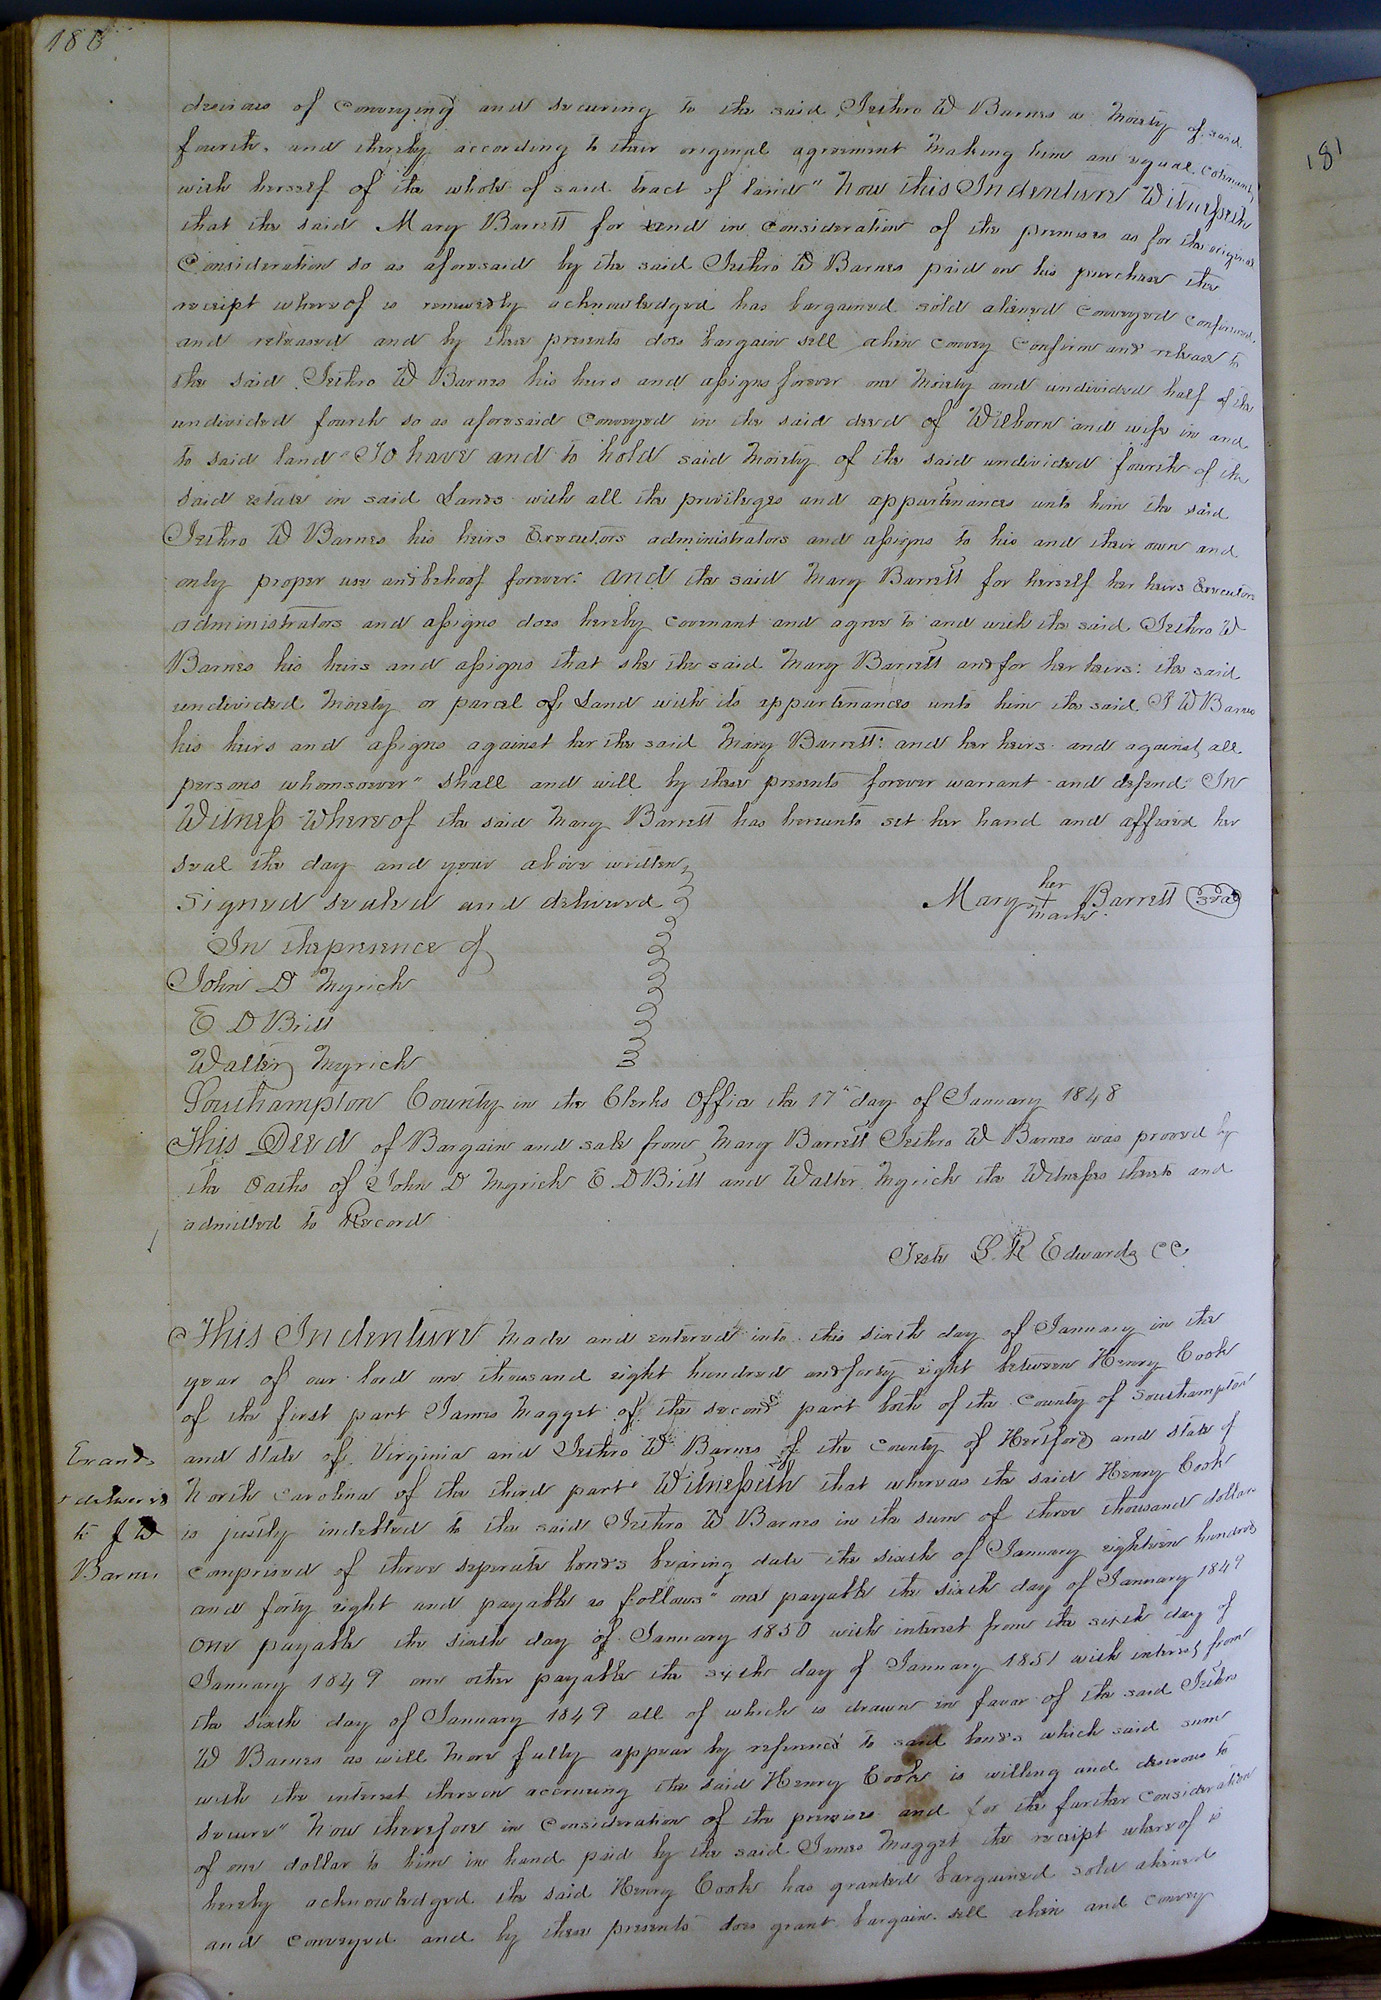 180
181
desirous of conveying and securing to the said Jethro W Barnes a moiety of said
fourth, and thereby according to their original agreement making him an equal cotenant
with herself of the whole of said tract of land" Now this Indenture Witnesseth
that the said Mary Barrett for and in consideration of the premises as for the original
Consideration so as aforesaid by the said Jethro W Barnes paid on his purchase the
receipt whereof is renewedly acknowledged has bargained sold aliened conveyed confirmed
and released and by these presents does bargain sell alien convey confirm and release to
the said Jethro W Barnes his heirs and assigns forever one moiety and undivided half of the
undivided fourth so as aforesaid conveyed in the said deed of Wilborn and wife in and
to said land "To have and to hold said moiety of the said undivided fourth of the
said estate in said Lands with all the privileges and appurtenances unto him the said
Jethro W Barnes his heirs Executors administrators and assigns to his and their own and
only proper use and behoof forever: and the said Mary Barrett for herself her heirs Executors
administrators and assigns does hereby covenant and agree to and with the said Jethro W
Barnes his heirs and assigns that she the said Mary Barrett and for her heirs: the said
undivided moiety or parcel of Land with its appurtenances unto him the said J W Barnes
his heirs and assigns against her the said Mary Barrett: and her heirs and against all
persons whomsoever" shall and will by these presents forever warrant and defend" In
Witness Whereof the said Mary Barrett has hereunto set her hand and affixed her
seal the day and year above written
Signed sealed and delivered
her
Mary + Barrett Seal
mark
In the presence of
John D Myrick
E D Britt
Walter Myrick
Southampton County in the Clerks Office the 17th day of January 1848
This Deed of Bargain and sale from Mary Barrett Jethro W Barnes was proved by
the Oaths of John D Myrick E D Britt and Walter Myrick the Witnesses thereto and
admitted to Record
Teste L. R Edwards CC
This Indenture made and entered into this sixth day of January in the
year of our lord one thousand eight hundred and forty eight between Henry Cook
of the first part James Magget of the second part both of the County of Southampton
and State of Virginia and Jethro W Barnes of the County of Hertford and State of
North Carolina of the third part Witnesseth that whereas the said Henry Cook
is justly indebted to the said Jethro W Barnes in the sum of three thousand dollars
Exand
& delivered
to J W
Barnes
comprised of three seperate bonds bearing date the sixth of January eighteen hundred
and forty eight and payable as follows" one payable the sixth day of January 1849
one payable the sixth day of January 1850 with interest from the sixth day of
January 1849 one other payable the sixth day of January 1851 with interest from
the sixth day of January 1849 all of which is drawn in favor of the said Jethro
W Barnes as will more fully appear by reference to said bonds which said sum
with the interest thereon accruing the said Henry Cook is willing and desirous to
secure" Now therefore in consideration of the premises and for the further consideration
of one dollar to him in hand paid by the said James Magget the receipt whereof is
hereby acknowledged the said Henry Cook has granted bargained sold aliened
and conveyed and by these presents does grant bargain sell alien and convey